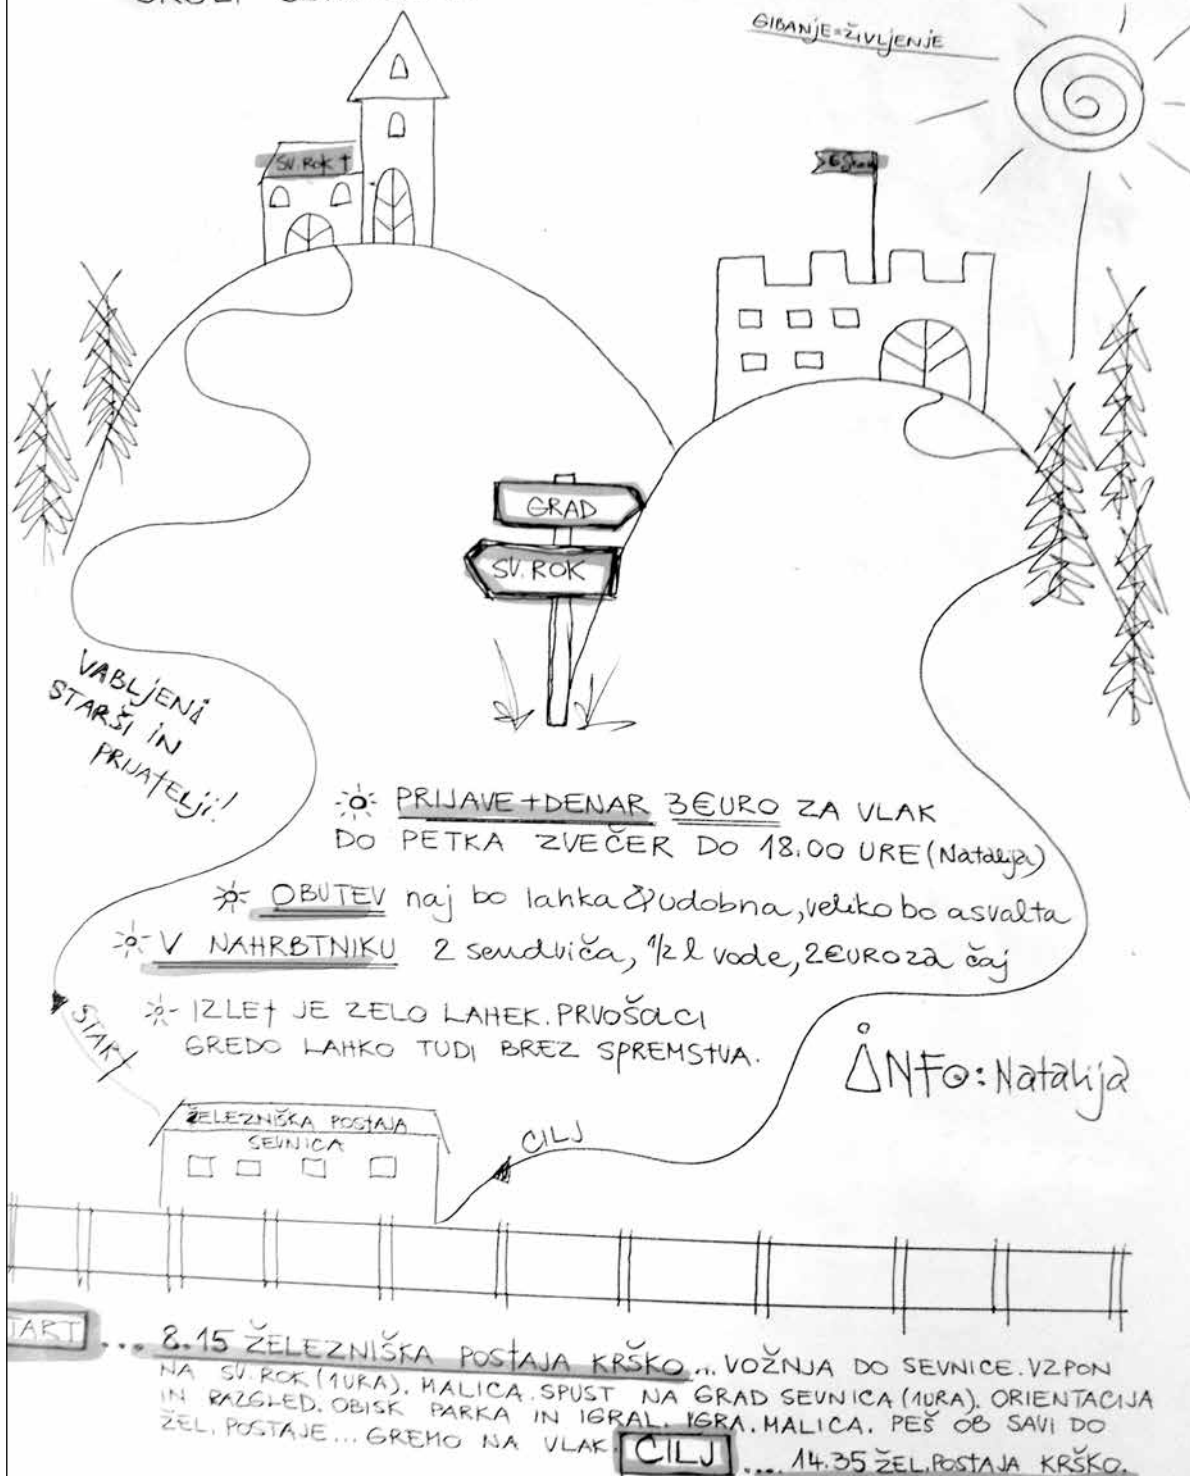 GIBANJE=ŽIVLJENJE
SV. ROK †
GRAD
SV. ROK
VABLJENI
STARŠI IN
PRIJATELJI!
PRIJAVE+DENAR 3€URO ZA VLAK
DO PETKA ZVEČER DO 18.00 URE (Natalija)
OBUTEV naj bo lahka & udobna, veliko bo asvalta
V NAHRBTNIKU 2 sendviča, 1/2 l vode, 2€URO za čaj
START
IZLET JE ZELO LAHEK. PRVOŠOLCI
GREDO LAHKO TUDI BREZ SPREMSTVA.
INFO: Natalija
ŽELEZNIŠKA POSTAJA
SEVNICA
CILJ
TART ... 8.15 ŽELEZNIŠKA POSTAJA KRŠKO... VOŽNJA DO SEVNICE. VZPON
NA SV. ROK (1URA). MALICA. SPUST NA GRAD SEVNICA (1URA). ORIENTACIJA
IN RAZGLED. OBISK PARKA IN IGRAL. IGRA. MALICA. PEŠ OB SAVI DO
ŽEL. POSTAJE... GREMO NA VLAK. CILJ .... 14.35 ŽEL. POSTAJA KRŠKO.